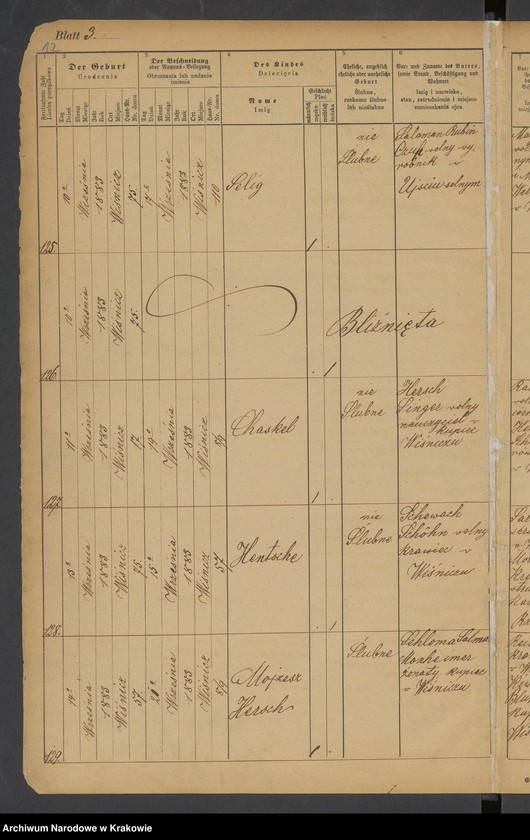 Blatt 3.
12
1 2 3 4 5 6
Fortlaufende Zahl
Liczba porządkowa
Der Geburt
Urodzenia
Der Beschneidung
oder Namens-Beilegung
Obrzezania lub nadania
imienia
Des Kindes
Dziecięcia
Eheliche, angeblich
eheliche oder uneheliche
Geburt
Ślubne,
rzekomo ślubne
lub nieślubne
Vor- und Zuname des Vaters,
sowie Stand, Beschäftigung und
Wohnort
Imię i nazwisko,
stan, zatrudnienie i miejsce
zamieszkania ojca
Tag
Dzień
Monat
Miesiąc
Jahr
Rok
Ort
Miejsce
Haus-Nr.
Nr. domu
Tag
Dzień
Monat
Miesiąc
Jahr
Rok
Ort
Miejsce
Haus-Nr.
Nr. domu
Name
Imię
Geschlecht
Płeć
männlich
męska
weiblich
żeńska
125.
10
Września
1883
Wiśnicz
75.
17
Września
1883
Wiśnicz
110
Selig
1
nie
Ślubne
Salaman Rubin
wolny wy
robnik w
Ujściu solnym
126.
10
Września
1883
Wiśnicz
75.
1
Bliźnięta
127.
11
Września
1883
Wiśnicz
17.
19
Września
1883
Wiśnicz
Chaskel
1
nie
Ślubne
Hersch
Singer wolny
nauczyciel
kupiec
Wiśniczu
128.
13
Września
1883
Wiśnicz
75.
15
Września
1883
Wiśnicz
57
Hentsche
1
nie
Ślubne
Schewach
Schöhn wolny
krawiec w
Wiśniczu
129.
14
Września
1883
Wiśnicz
57
Września
1883
Wiśnicz
Mojzesz
Hersch
1
Ślubne
Schloma Salma
Manheimer
żonaty kupiec
w Wiśniczu
Archiwum Narodowe w Krakowie